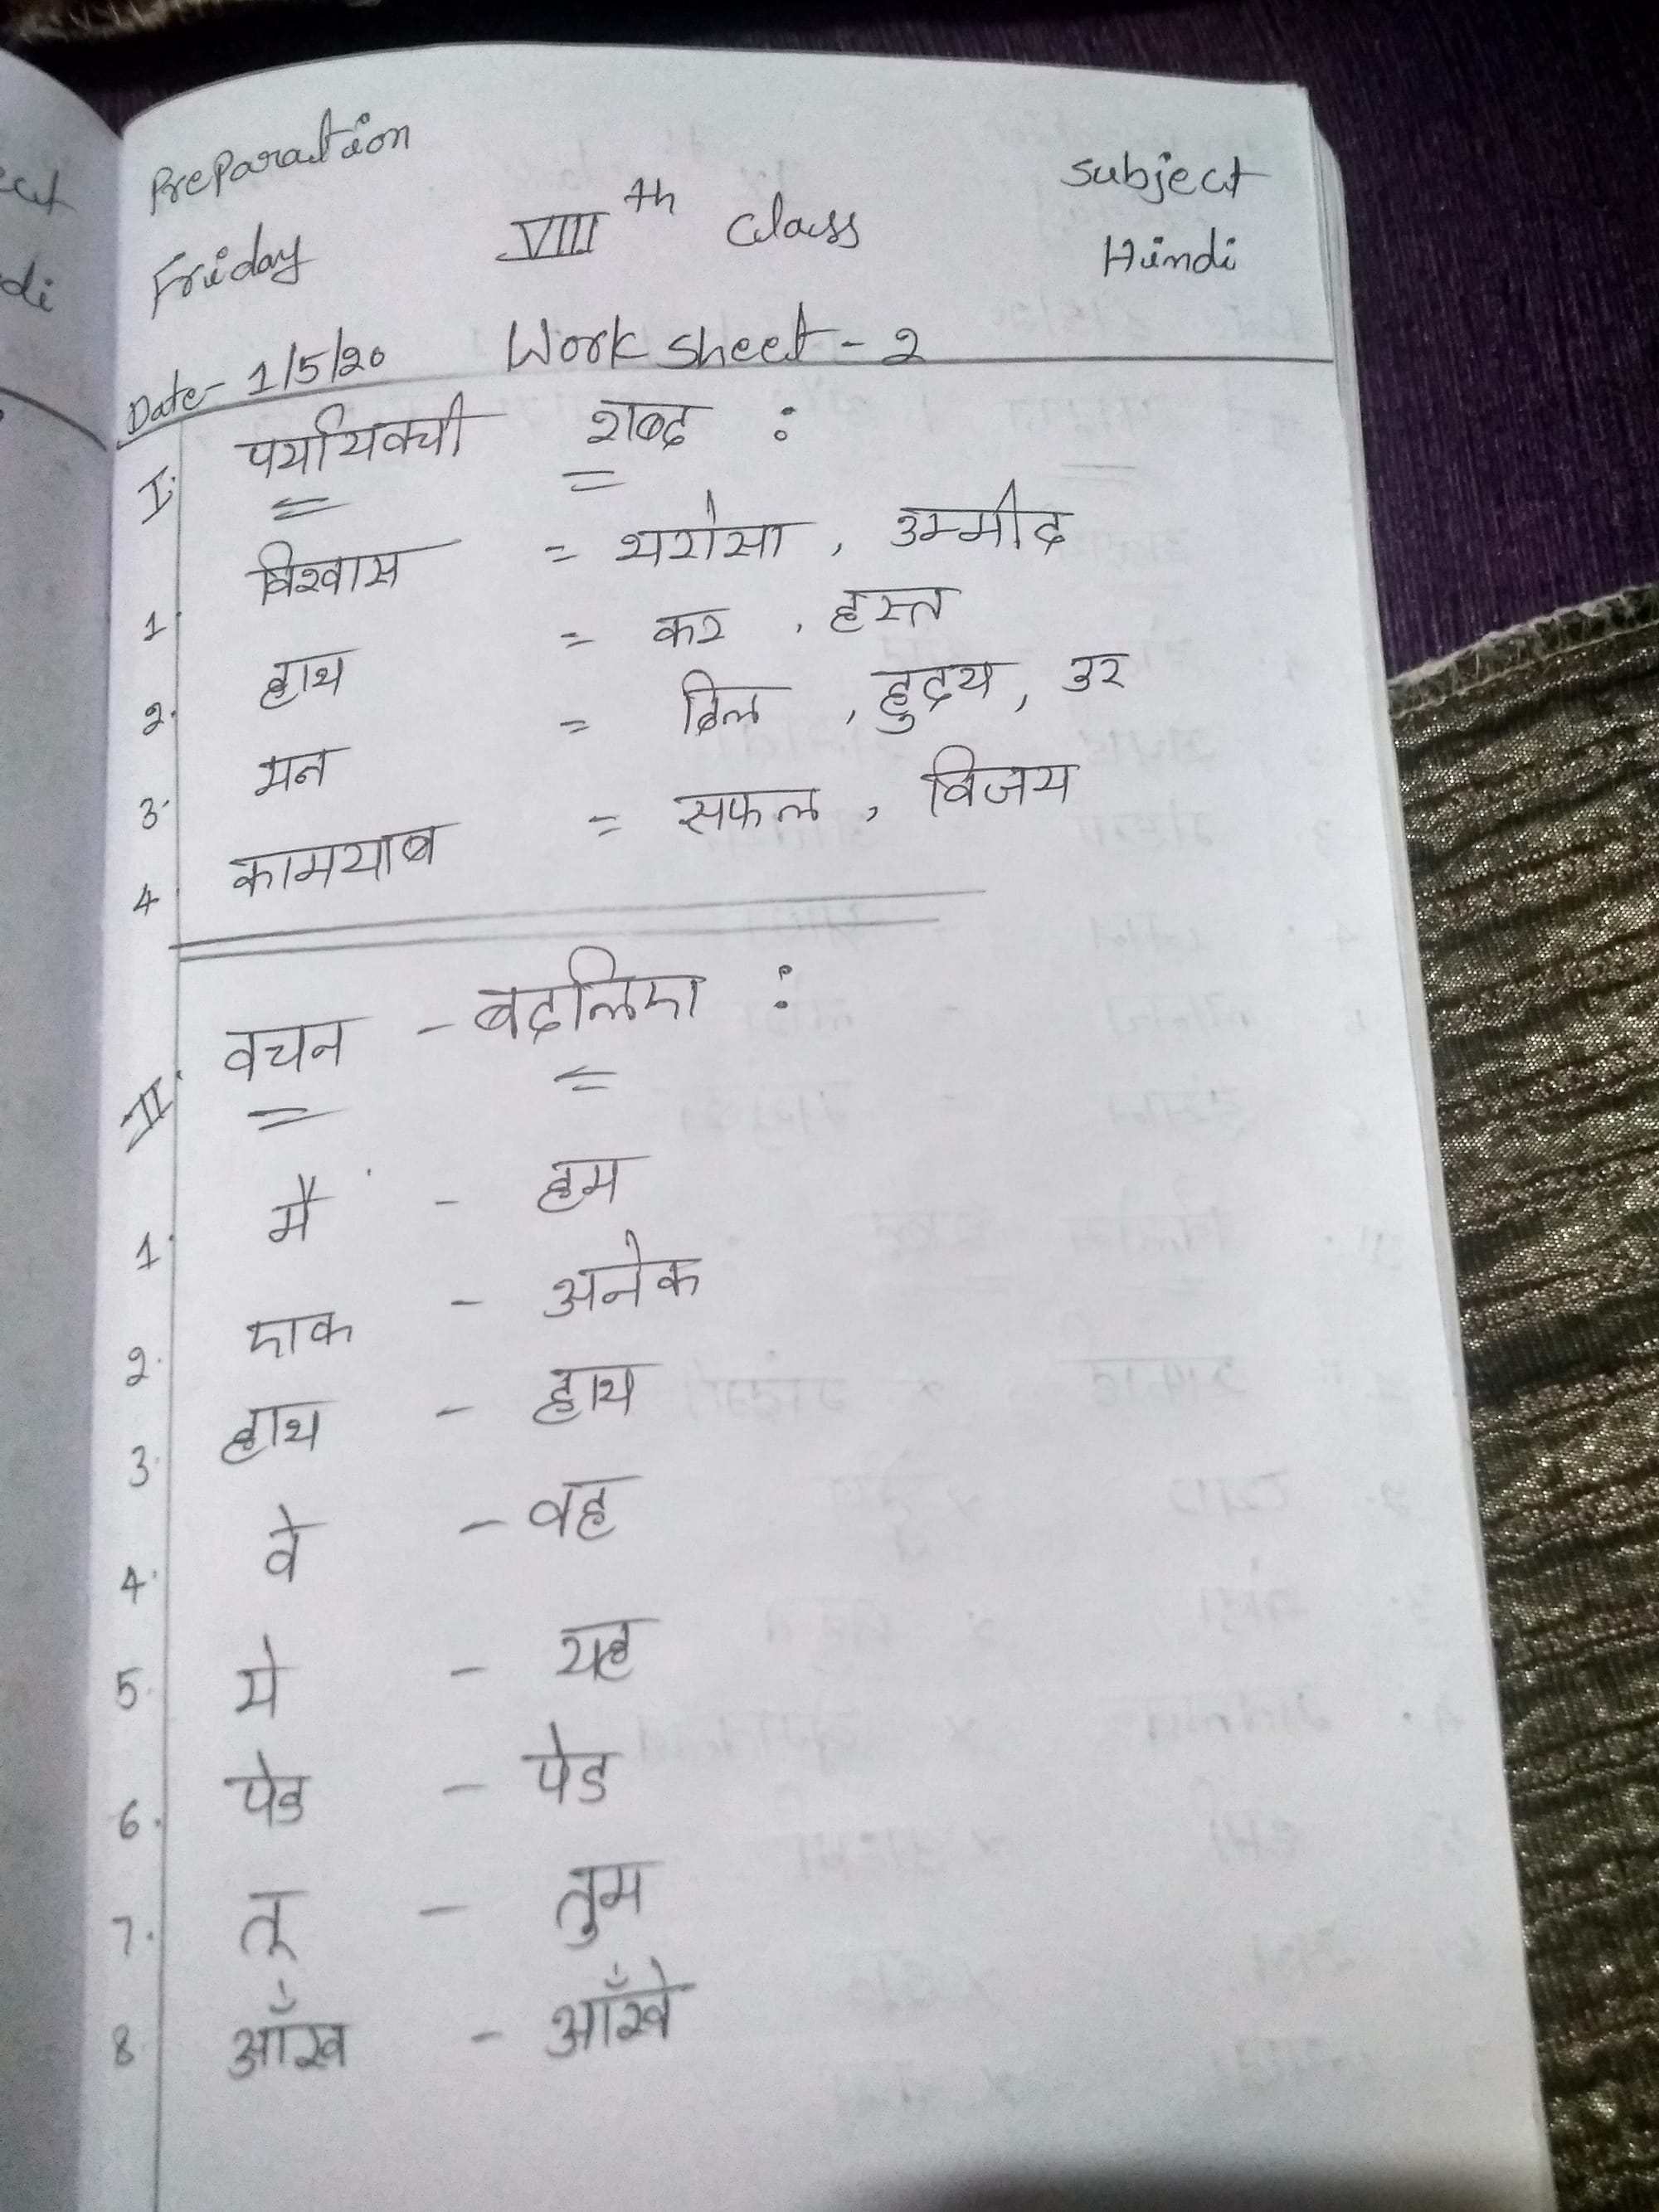 Preparation
Subject
Friday VIII th Class Hindi
Date- 1/5/20 Work sheet - 2
I. पर्यायवची शब्द :
1. विश्वास = भरोसा , उम्मीद
2. हाथ = कर , हस्त
3. मन = दिल , हुदय , उर
4. कामयाब = सफल , विजय
II. वचन - बदलिए :
1. मै - हम
2. एक - अनेक
3. हाथ - हाथ
4. वे - वह
5. ये - यह
6. पेड - पेड
7. तू - तुम
8 आँख - आँखे